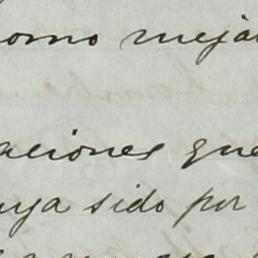 como mejor
aciones que
uya sido por